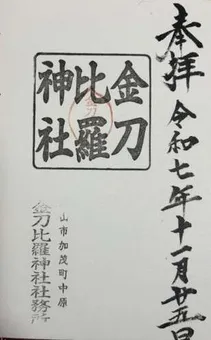 奉拝 令和七年十一月廿五日
金刀
比羅
神社
山市加茂町中原
金刀比羅神社社務所